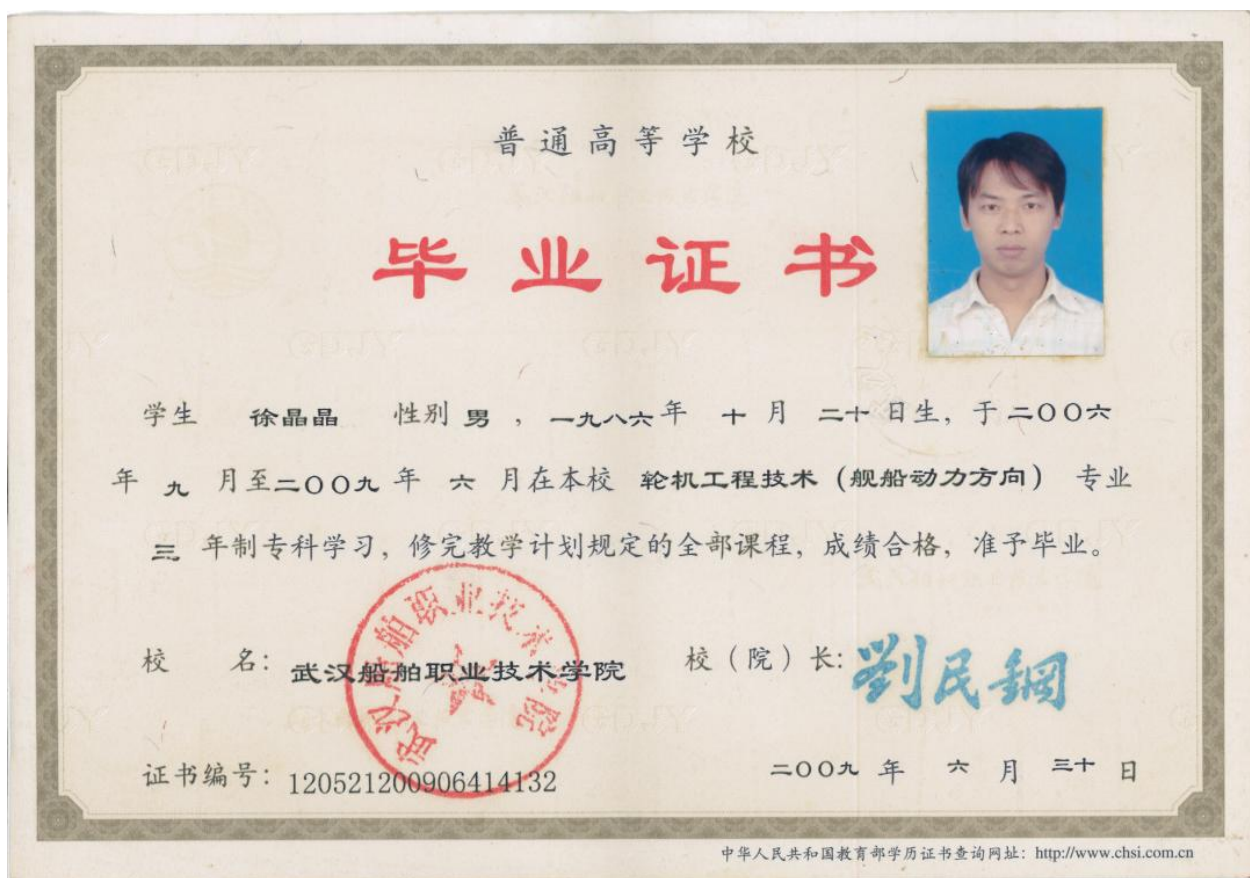 普通高等学校
毕业证书
学生 徐晶晶 性别 男 , 一九八六 年 十 月 二十 日生, 于 二〇〇六
年 九 月至 二〇〇九 年 六 月在本校 轮机工程技术 (舰船动力方向) 专业
三 年制专科学习, 修完教学计划规定的全部课程, 成绩合格, 准予毕业。
武汉船舶职业技术学院
校 名: 武汉船舶职业技术学院 校(院)长: 劉民鋼
证书编号: 120521200906414132 二〇〇九 年 六 月 三十 日
中华人民共和国教育部学历证书查询网址: http://www.chsi.com.cn